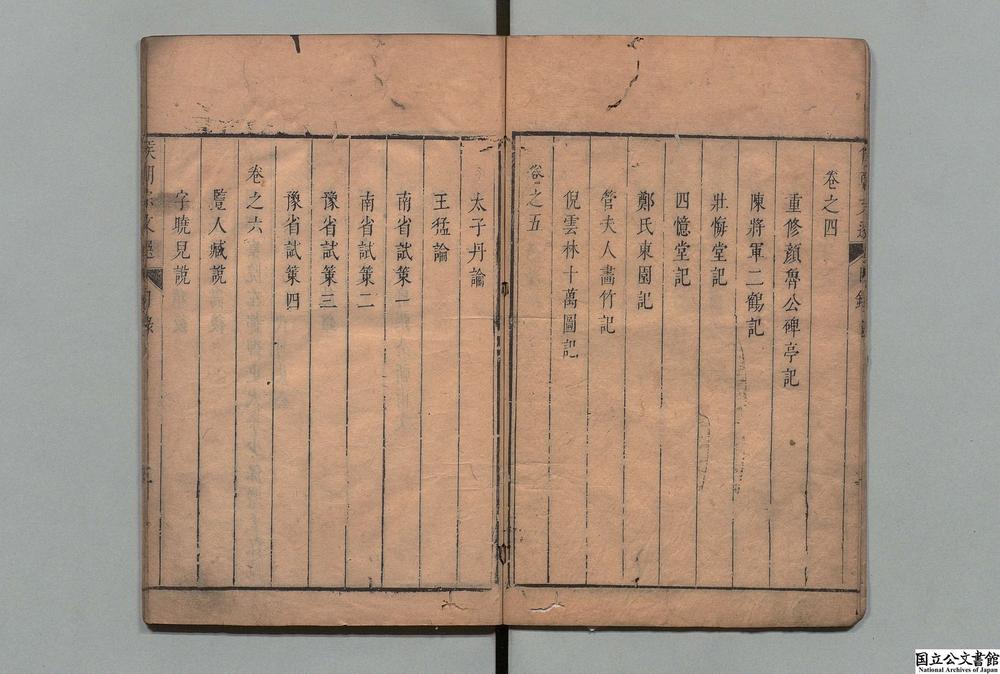 卷之四
重修顏魯公碑亭記
陳將軍二鶴記
壯悔堂記
四憶堂記
鄭氏東園記
管夫人畵竹記
倪雲林十萬圖記
卷之五
太子丹論
王猛論
南省試策一
南省試策二
豫省試策三
豫省試策四
卷之六
蹇人臧說
字曉兒說
侯朝宗文選 目錄
国立公文書館
National Archives of Japan